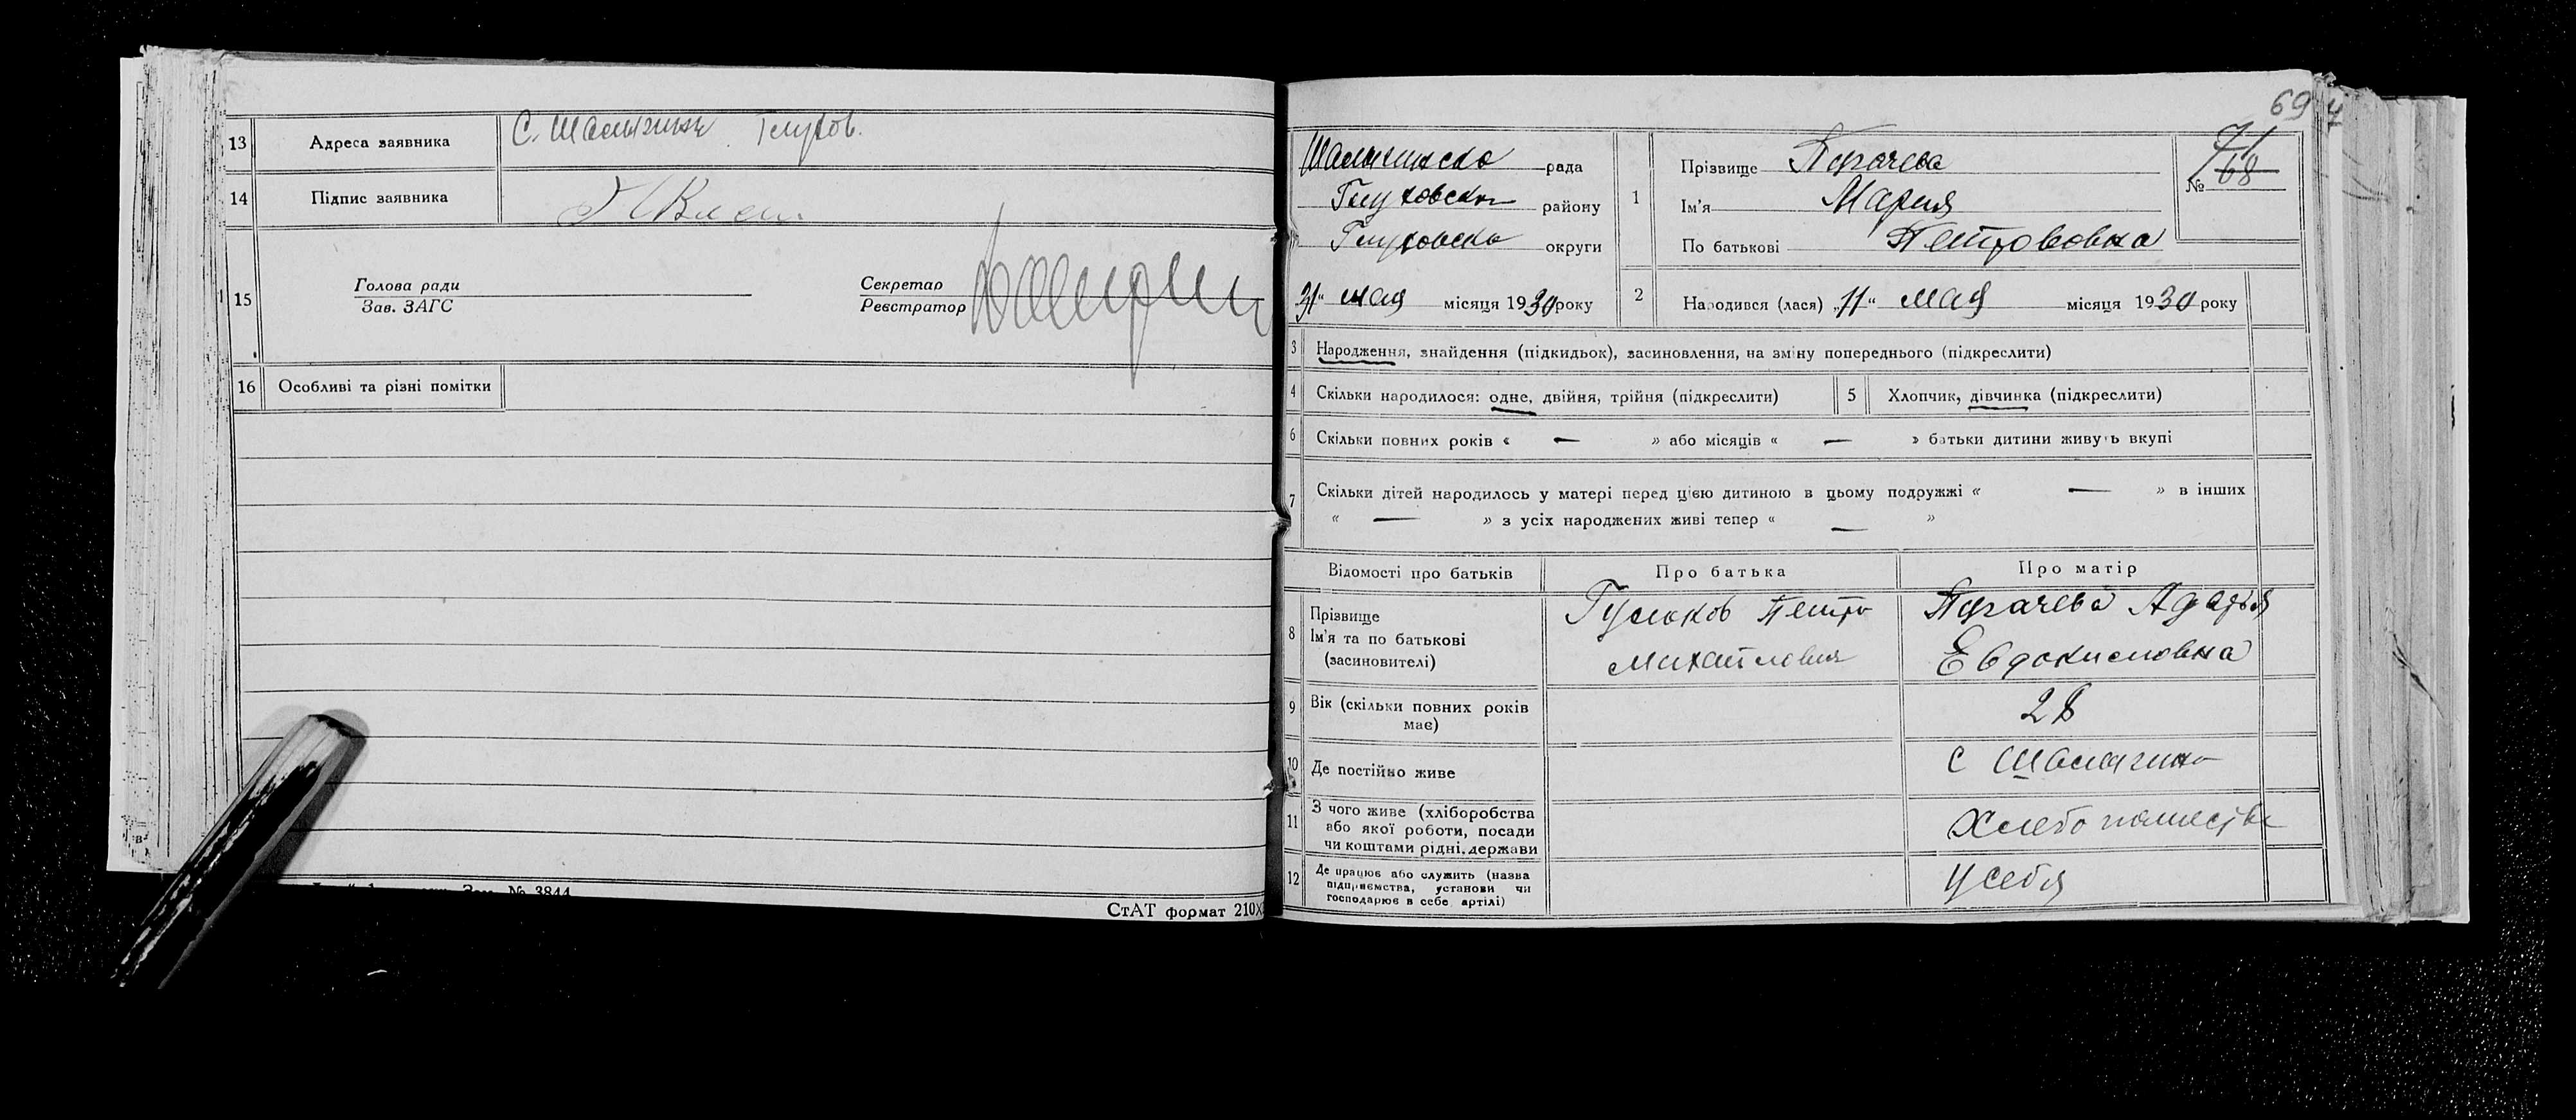 13 Адреса заявника С. Шалыгине Глухов.
14 Підпис заявника
15 Голова ради Зав. ЗАГС Секретар Реєстратор
16 Особливі та різні помітки
№ 3844
СтАТ формат 210Х
69
Шалыгинско рада
Глуховско району
Глуховско округи
31 „ мая місяця 1930 року
1 Прізвище Пугачева
Ім'я Мария
По батькові Петрововна
№ 71 68
2 Народився (лася) „11“ мая місяця 1930 року
3 Народження, знайдення (підкидьок), засиновлення, на зміну попереднього (підкреслити)
4 Скільки народилося: одне, двійня, трійня (підкреслити) 5 Хлопчик, дівчинка (підкреслити)
6 Скільки повних років « — » або місяців « — » батьки дитини живуть вкупі
7 Скільки дітей народилось у матері перед цією дитиною в цьому подружжі « — » в інших
« — » з усіх народжених живі тепер « — »
Відомості про батьків Про батька Про матір
8 Прізвище Ім'я та по батькові (засиновителі) Петр Михайлович Пугачева Евдокимовна
9 Вік (скільки повних років має) 28
10 Де постійно живе с Шалыгино
11 З чого живе (хліборобства або якої роботи, посади чи коштами рідні, держави
12 Де працює або служить (назва підприємства, установи чи господарює в себе артілі) у себя